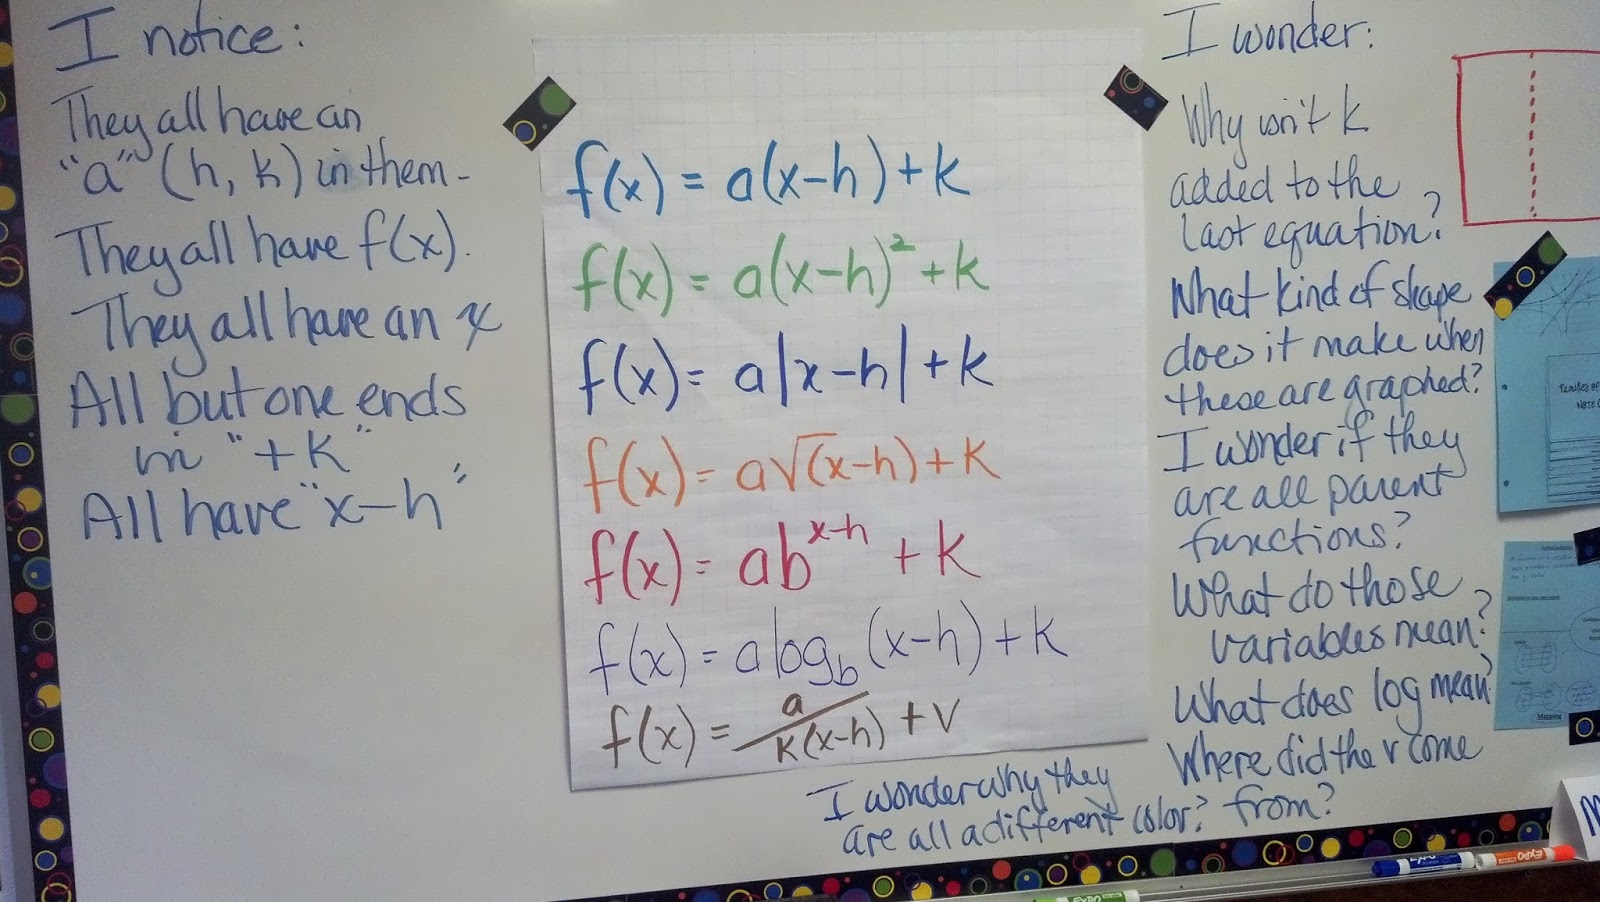 I notice:
They all have an
"a" (h, k) in them-
They all have f(x).
They all have an x
All but one ends
in "+k"
All have "x-h"
f(x) = a(x-h)+k
f(x) = a(x-h)²+k
f(x) = a|x-h|+k
f(x) = a√(x-h)+k
f(x) = ab^(x-h) + k
f(x) = a log_b (x-h)+k
f(x) = a/k(x-h) + v
I wonder:
Why isn't k
added to the
last equation?
What kind of shape
does it make when
these are graphed?
I wonder if they
are all parent
functions?
What do those
variables mean?
What does log mean?
Where did the v come
from?
I wonder why they
are all a different color?
Families of
Mapping
EXPO
EXPO
EXPO